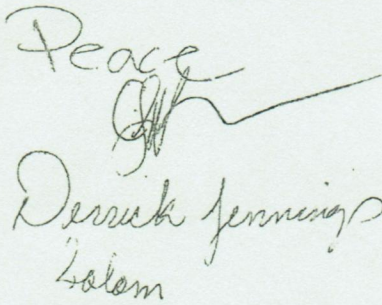 Peace
Derrick Jennings